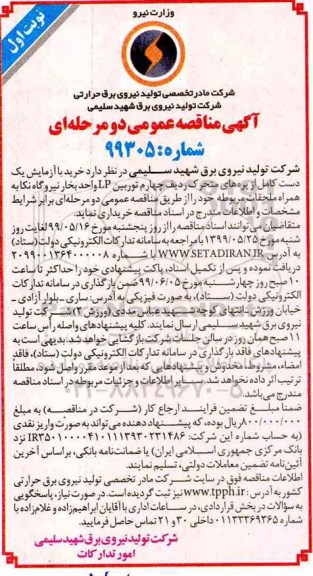 وزارت نیرو
نوبت اول
شرکت مادر تخصصی تولید نیروی برق حرارتی
شرکت تولید نیروی برق شهید سلیمی
آگهی مناقصه عمومی دو مرحله‌ای
شماره: ۹۹۳۰۵
شرکت تولید نیروی برق شهید سلیمی در نظر دارد خرید با آزمایش یک
دست کامل از پره‌های متحرک ردیف چهارم توربین LP واحد بخار نیروگاه نکا به
همراه ملحقات مربوط خود را از طریق مناقصه عمومی دو مرحله‌ای برابر شرایط
مشخصات و اطلاعات مندرج در اسناد مناقصه خریداری نماید.
متقاضیان می‌توانند اسناد مناقصه را از روز پنجشنبه مورخ ۹۹/۰۵/۱۶ لغایت روز
شنبه مورخ ۱۳۹۹/۰۵/۲۵ با مراجعه به سامانه تدارکات الکترونیکی دولت (ستاد)
به آدرس WWW.SETADIRAN.IR با شماره ۲۰۹۹۰۰۱۳۶۴۰۰۰۰۰۸
دریافت نموده و پس از تکمیل اسناد، پاکت پیشنهادی خود را حداکثر تا ساعت
۱۰ صبح روز چهارشنبه مورخ ۹۹/۰۶/۰۵ ضمن بارگذاری در سامانه تدارکات
الکترونیکی دولت (ستاد)، به صورت فیزیکی به آدرس: ساری ـ بلوار آزادی ـ
خیابان ورزش ـ انتهای کوچه شهید عباس مددی (ورزش ۳) شرکت تولید
نیروی برق شهید سلیمی ارسال نمایند. کلیه پیشنهادهای واصله رأس ساعت
۱۱ صبح همان روز در سالن جلسات شرکت بازگشایی خواهد شد. بدیهی است به
پیشنهادهای فاقد بارگذاری در سامانه تدارکات الکترونیکی دولت (ستاد)، فاقد
امضاء، مشروط، مخدوش و پیشنهادهایی که بعد از موعد مقرر واصل شود، مطلقا
ترتیب اثر داده نخواهد شد. سایر اطلاعات و جزئیات مربوطه در اسناد مناقصه
مندرج می‌باشد.
ضمنا مبلغ تضمین فرایند ارجاع کار (شرکت در مناقصه) به مبلغ
۸۰۰/۰۰۰/۰۰۰ ریال بوده، که پیشنهاد دهنده می‌تواند به صورت واریز نقدی
(به حساب شماره این شرکت: IR۳۵۰۱۰۰۰۰۴۱۰۱۱۱۳۹۳۰۲۳۱۴۸۶ نزد
بانک مرکزی جمهوری اسلامی ایران) یا ضمانت‌نامه بانکی، براساس آخرین
آئین‌نامه تضمین معاملات دولتی، تسلیم نمایند.
اطلاعات مناقصه فوق در سایت شرکت مادر تخصصی تولید نیروی برق حرارتی
کشور به آدرس: www.tpph.ir نیز ثبت گردیده است. در صورت نیاز، پاسخگویی
به سؤالات در بخش قراردادی، در ساعات اداری با آقایان ابراهیم‌زاده و غلام‌زاده با
شماره ۰۱۱۳۳۳۶۹۳۶۵ داخلی ۳۰ و ۲۱ تماس حاصل فرمایید.
شرکت تولید نیروی برق شهید سلیمی
امور تدارکات